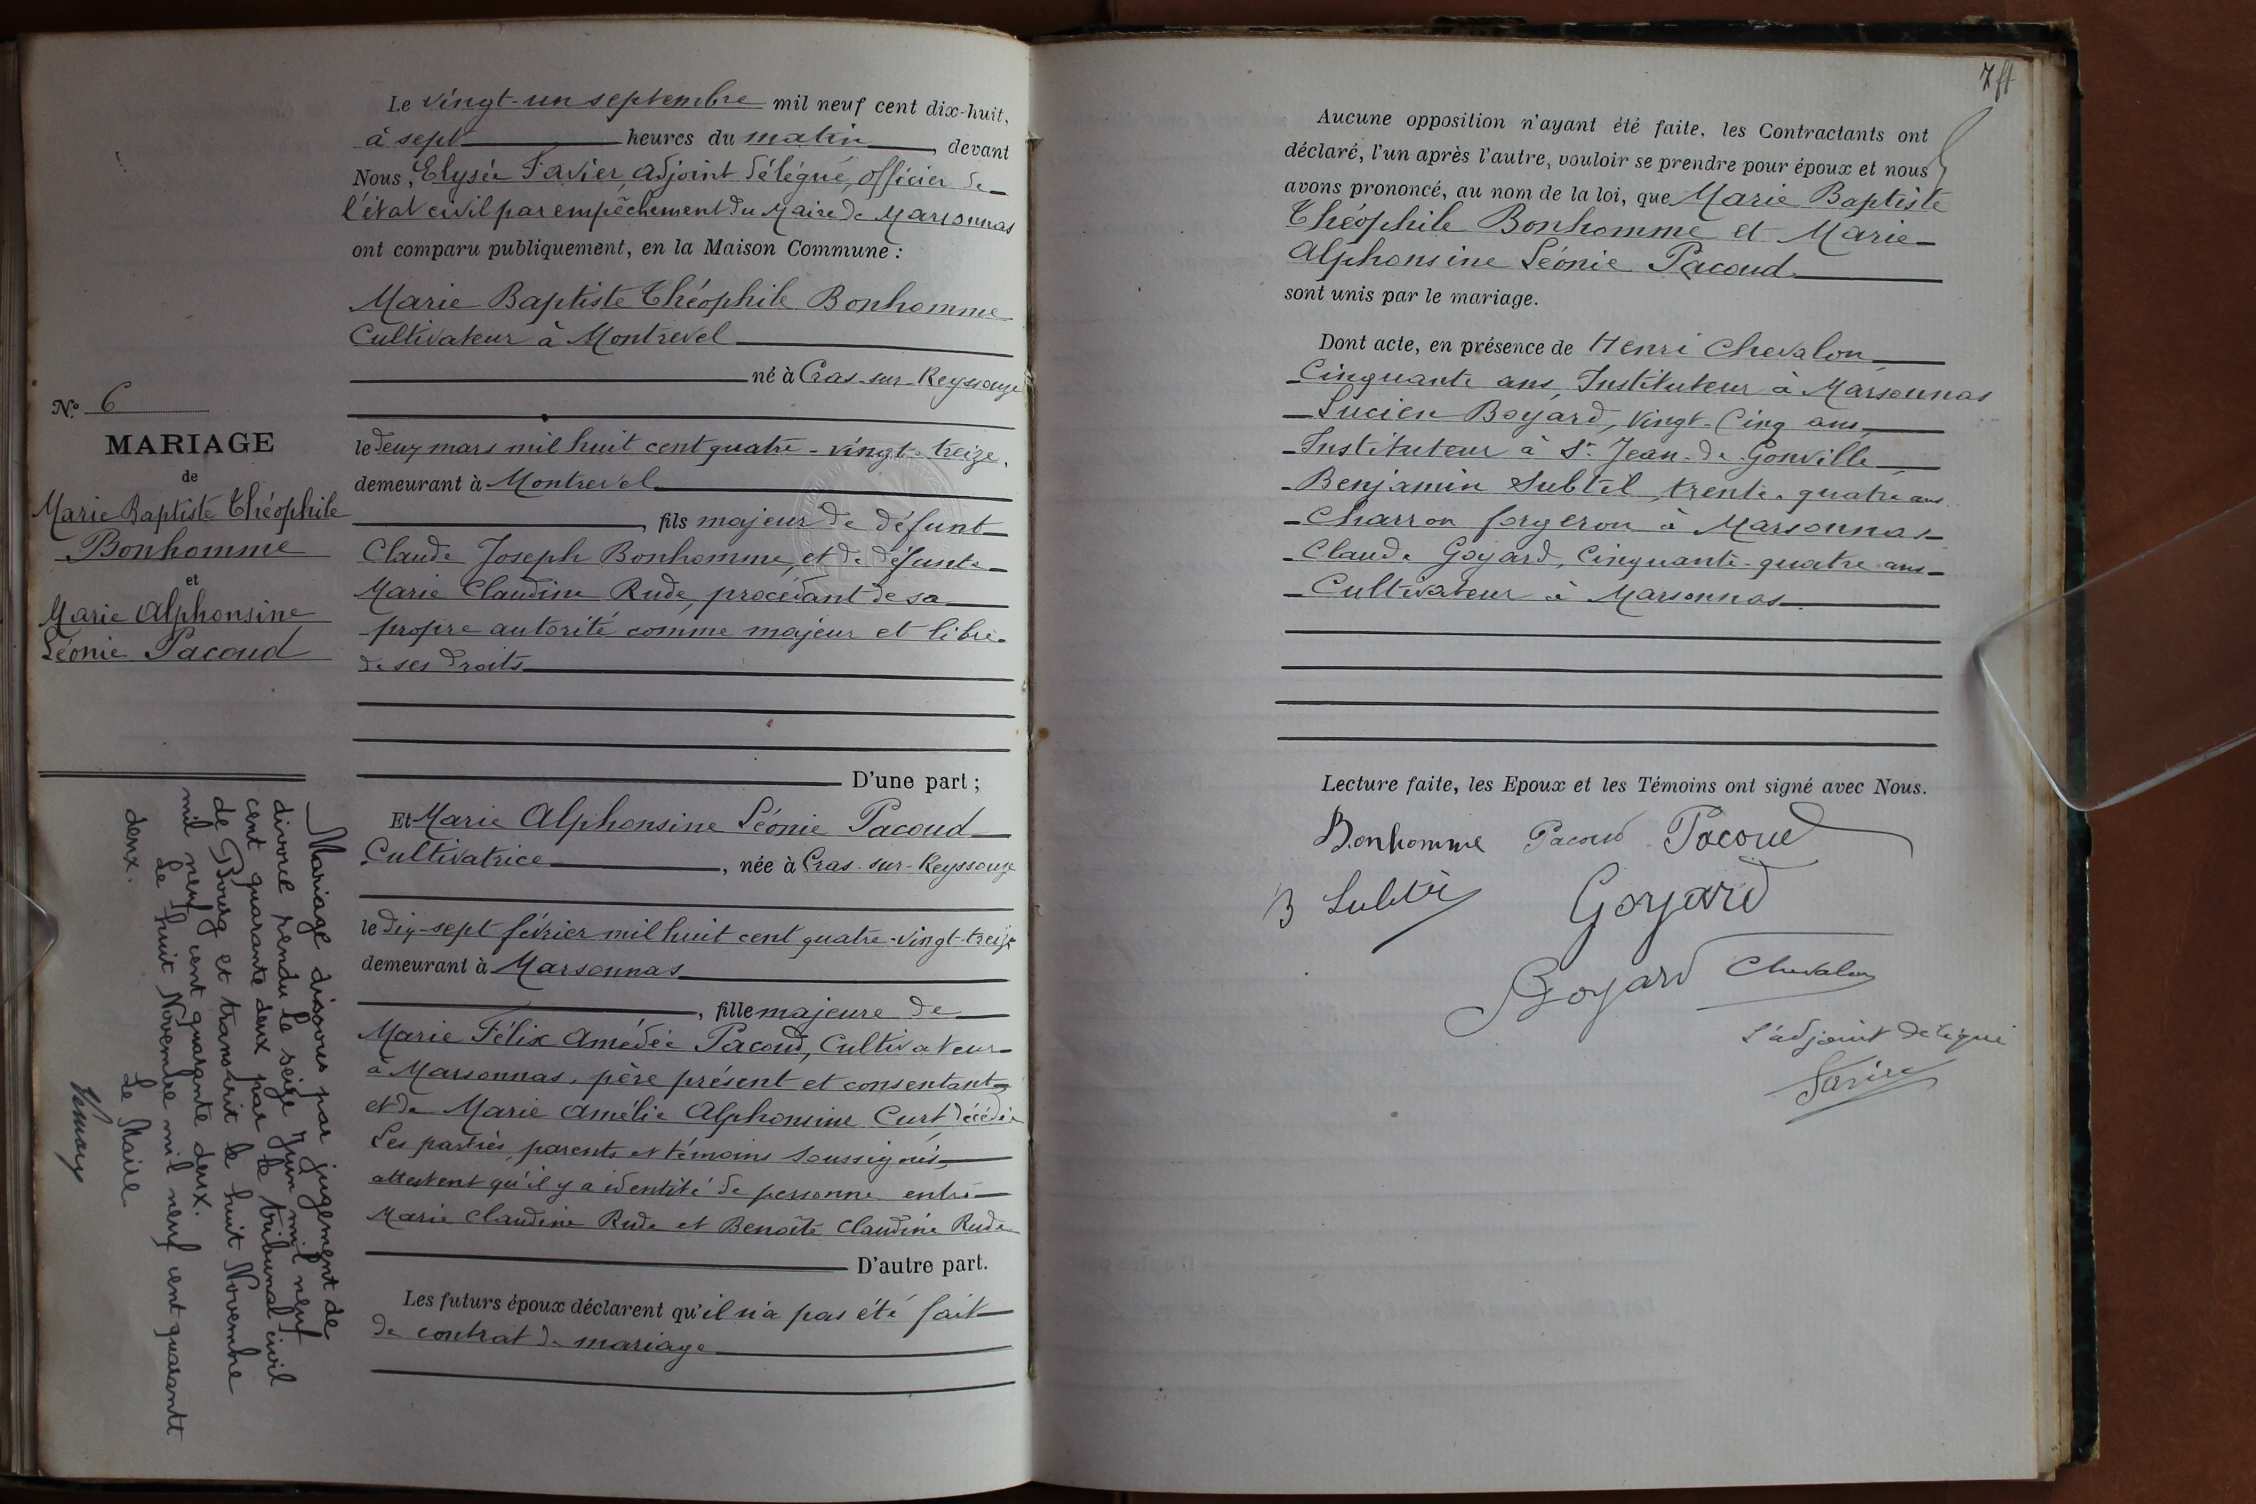 Le vingt-un septembre mil neuf cent dix-huit,
à sept heures du matin, devant
Nous, Elysée Favier, adjoint délégué, officier de
l'état civil par empêchement du Maire de Marsonnas
ont comparu publiquement, en la Maison Commune :
Marie Baptiste Théophile Bonhomme
Cultivateur à Montrevel
né à Cras-sur-Reyssouze
le deux mars mil huit cent quatre-vingt-treize,
demeurant à Montrevel
, fils majeur de défunt
Claude Joseph Bonhomme, et de défunte
Marie Claudine Rude, procédant de sa
propre autorité comme majeur et libre
de ses droits
D'une part ;
Et Marie Alphonsine Léonie Pacoud
Cultivatrice, née à Cras-sur-Reyssouze
le dix-sept février mil huit cent quatre-vingt-treize
demeurant à Marsonnas
, fille majeure de
Marie Félix Amédée Pacoud, Cultivateur
à Marsonnas, père présent et consentant,
et de Marie Amélie Alphonsine Curt, décédée
Les parties, parents et témoins soussignés,
attestent qu'il y a identité de personne entre
Marie Claudine Rude et Benoîte Claudine Rude
D'autre part.
Les futurs époux déclarent qu'il n'a pas été fait
de contrat de mariage
N° 6
MARIAGE
de
Marie Baptiste Théophile
Bonhomme
et
Marie Alphonsine
Léonie Pacoud
Mariage dissous par jugement de
divorce rendu le seize Juin mil neuf
cent quarante deux par le tribunal civil
de Bourg et transcrit le huit Novembre
mil neuf cent quarante deux.
Le huit Novembre mil neuf cent quarante
deux.
Le Maire
Aucune opposition n'ayant été faite, les Contractants ont
déclaré, l'un après l'autre, vouloir se prendre pour époux et nous
avons prononcé, au nom de la loi, que Marie Baptiste
Théophile Bonhomme et Marie
Alphonsine Léonie Pacoud
sont unis par le mariage.
Dont acte, en présence de Henri Chevalon
Cinquante ans, Instituteur à Marsonnas
Lucien Boyard, vingt-cinq ans,
Instituteur à St Jean-de-Gonville
Benjamin Subtil, trente-quatre ans
Charron forgeron à Marsonnas
Claude Goyard, Cinquante-quatre ans
Cultivateur à Marsonnas
Lecture faite, les Epoux et les Témoins ont signé avec Nous.
Bonhomme Pacoud Pacoud
B Subtil Goyard
Boyard Chevalon
L'adjoint délégué
Favier